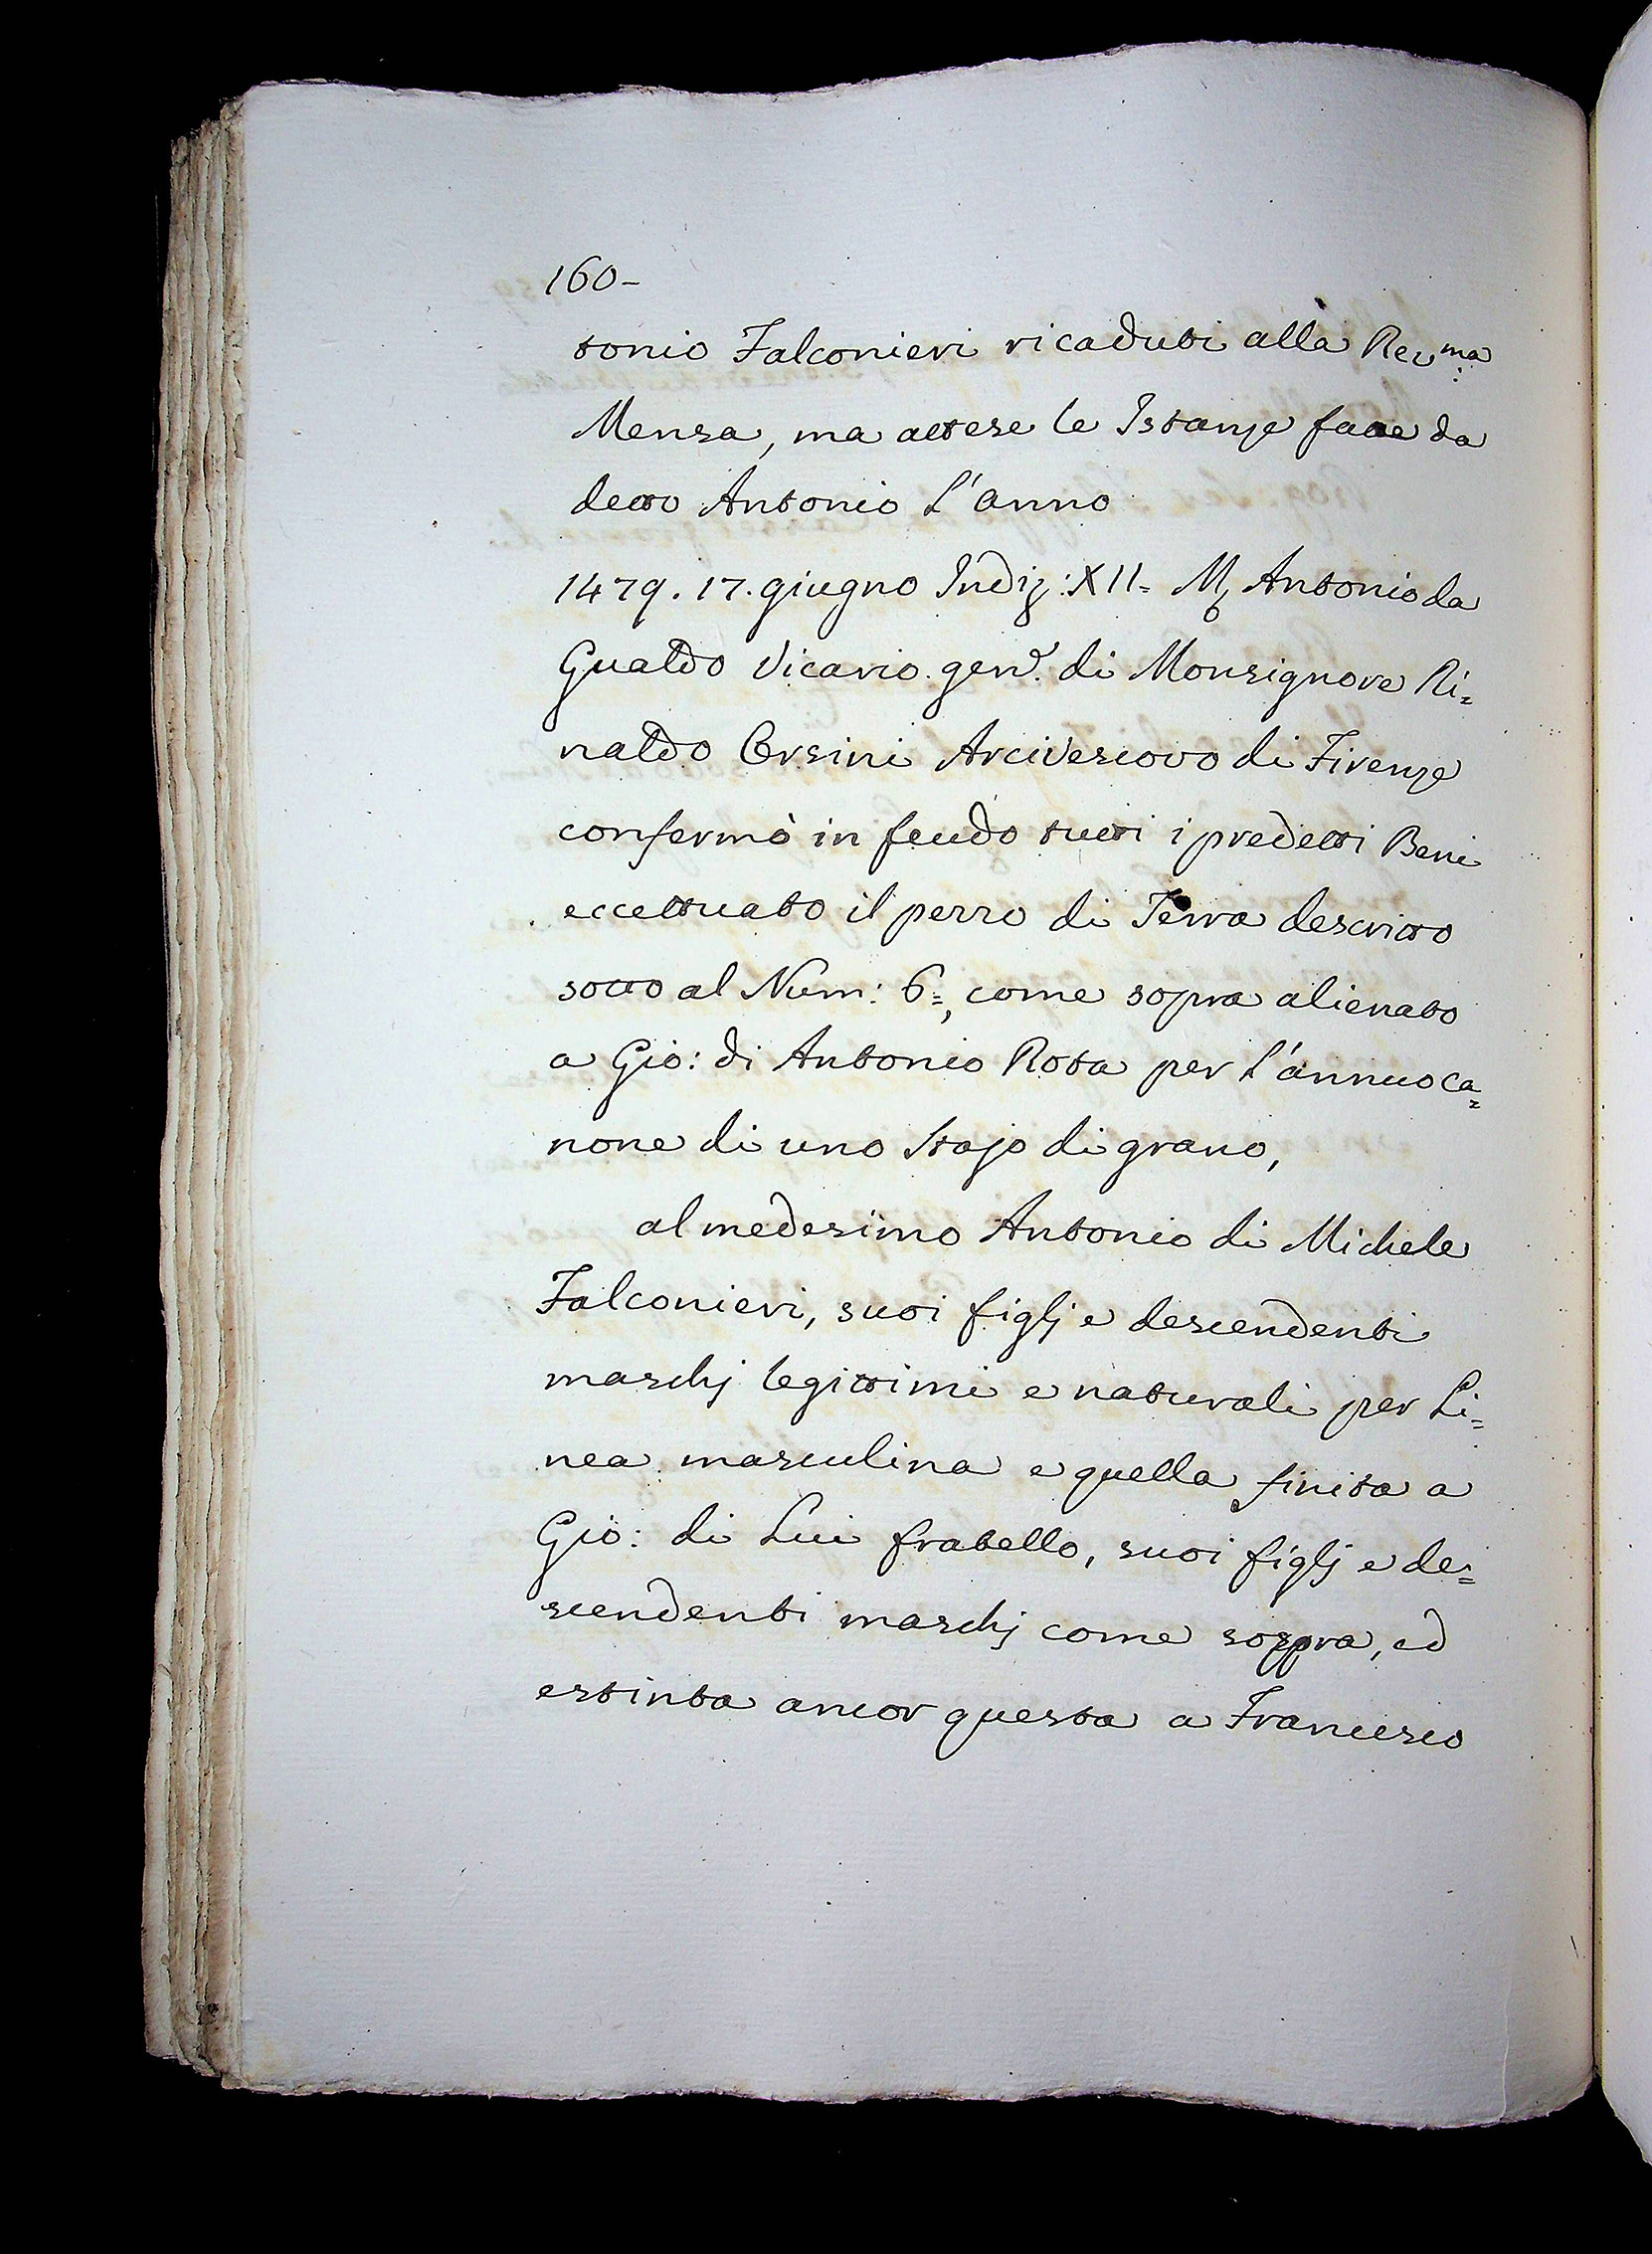 160-
tonio Falconieri ricaduti alla Reu:ma
Mensa, ma attese le Istanze fatte da
detto Antonio L'anno
1479. 17. giugno Indiz: XII= M. Antonio da
Gualdo Vicario genl. di Monsignore Ri=
naldo Orsini Arcivescovo di Firenze
confermò in feudo tutti i predetti Beni
eccettuato il pezzo di Terra descritto
sotto al Num: 6=, come sopra alienato
a Gio: di Antonio Rota per L'annuo ca=
none di uno Stajo di grano,
al medesimo Antonio di Michele
Falconieri, suoi figlj e descendenti
maschj legittimi e naturali per Li=
nea masculina e quella finita a
Gio: di Lui fratello, suoi figlj e de=
scendenti maschj come soppra, ed
estinta ancor questa a Francesco